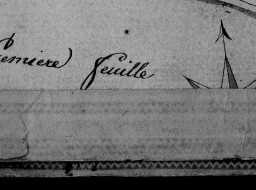 Premiere feuille